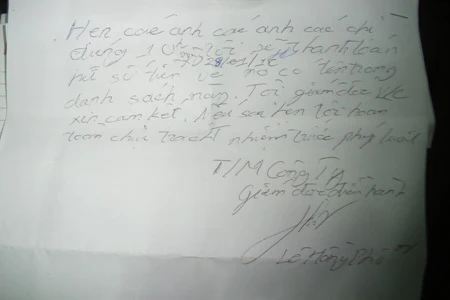 Hẹn các anh các anh các chị
đúng 10h tôi sẽ thanh toán
28/01/16
hết số tiền về nợ có tên trong
danh sách này. Tôi giám đốc
xin cam kết. Nếu sai hẹn tôi hoàn
toàn chịu trách nhiệm trước pháp luật
T/M Công Ty
Giám đốc điều hành
Lê Hồng